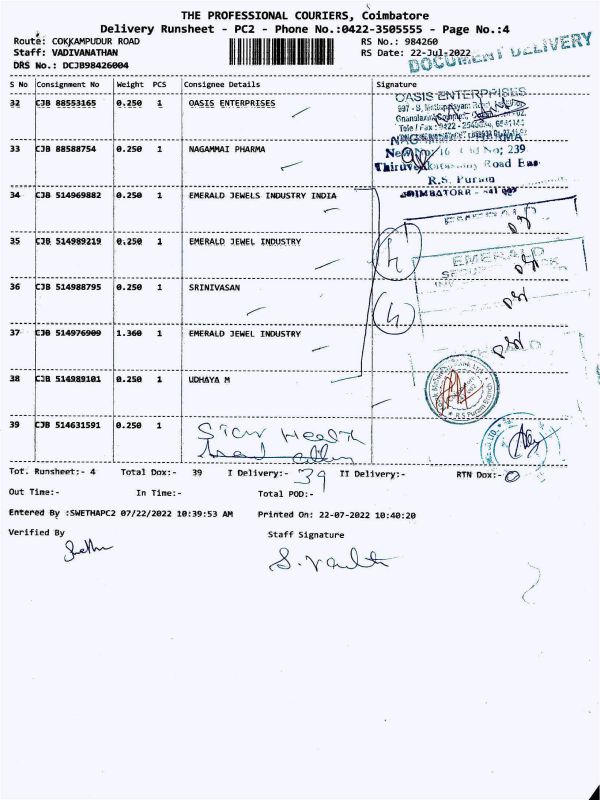 THE PROFESSIONAL COURIERS, Coimbatore
Delivery Runsheet - PC2 - Phone No.:0422-3505555 - Page No.:4
Route: COKKAMPUDUR ROAD RS No.: 984260
Staff: VADIVANATHAN RS Date: 22-Jul-2022
DRS No.: DCJB98426004
DOCUMENT DELIVERY
S No Consignment No Weight PCS Consignee Details Signature
32 CJB 88553165 0.250 1 OASIS ENTERPRISES
OASIS ENTERPRISES
33 CJB 88588754 0.250 1 NAGAMMAI PHARMA
239
Road East
R.S. Puram
34 CJB 514969882 0.250 1 EMERALD JEWELS INDUSTRY INDIA
35 CJB 514989219 0.250 1 EMERALD JEWEL INDUSTRY
EMERALD
36 CJB 514988795 0.250 1 SRINIVASAN
37 CJB 514976909 1.360 1 EMERALD JEWEL INDUSTRY
38 CJB 514989101 0.250 1 UDHAYA M
39 CJB 514631591 0.250 1 Star Health
Tot. Runsheet:- 4 Total Dox:- 39 I Delivery:- 39 II Delivery:- RTN Dox:- 0
Out Time:- In Time:- Total POD:-
Entered By :SWETHAPC2 07/22/2022 10:39:53 AM Printed On: 22-07-2022 10:40:20
Verified By Staff Signature